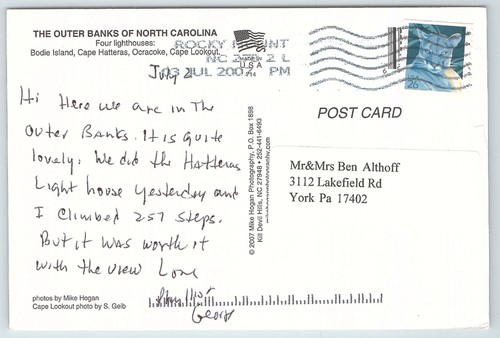 THE OUTER BANKS OF NORTH CAROLINA
Four lighthouses:
Bodie Island, Cape Hatteras, Ocracoke, Cape Lookout.
MADE IN
U S A
ROCKY MOUNT
NC 2
03 JUL 2007 PM
26
July 2
Hi Here we are in The
Outer Banks. It is quite
lovely. We did the Hatteras
Light house yesterday and
I climbed 257 steps.
But it was worth it
with the view Love
George
POST CARD
Mr&Mrs Ben Althoff
3112 Lakefield Rd
York Pa 17402
© 2007 Mike Hogan Photography, P.O. Box 1898
Kill Devil Hills, NC 27948 • 252-441-6493
photos by Mike Hogan
Cape Lookout photo by S. Geib